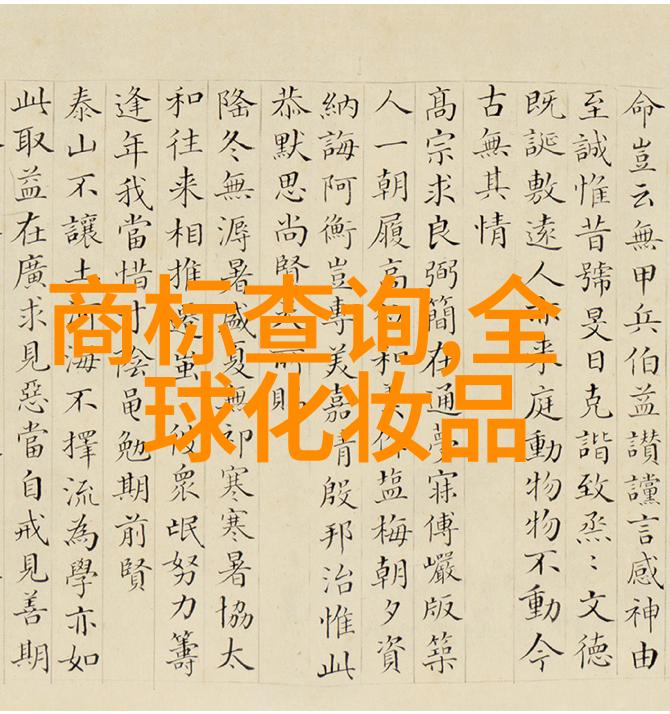 商标查询,全
球化妆品
命豈云無甲兵伯益讃讜言感神由
至誠惟昔號旻日克諧致烝〻文德
既誕敷遠人亦来庭動物物不動今
古無其情
髙宗求良弼簡在通夢寐傅巖版築
人一朝履高和羹作塩梅朝夕資
納誨阿衡豈專美嘉靖殷邦治惟此
恭默思尚賢所
隆冬無溽暑盛夏無祁寒寒暑協太
和往来相推遷蚩彼衆氓努力籌
逢年我當惜寸陰黽勉期前賢
泰山不讓土河海不擇流為學亦如
此取益在廣求見惡當自戒見善期